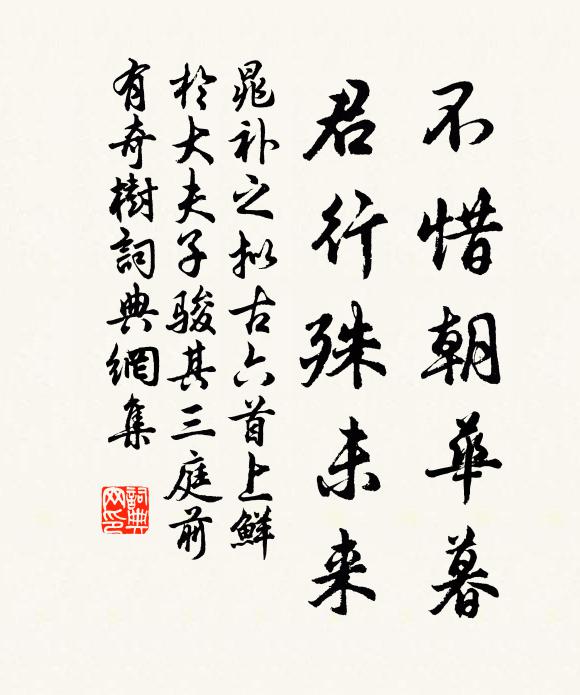 不惜朝華暮
君行殊未来
晁补之拟古六首上鮮
於大夫子駿其三庭前
有奇樹詞典網集
詞典
网印